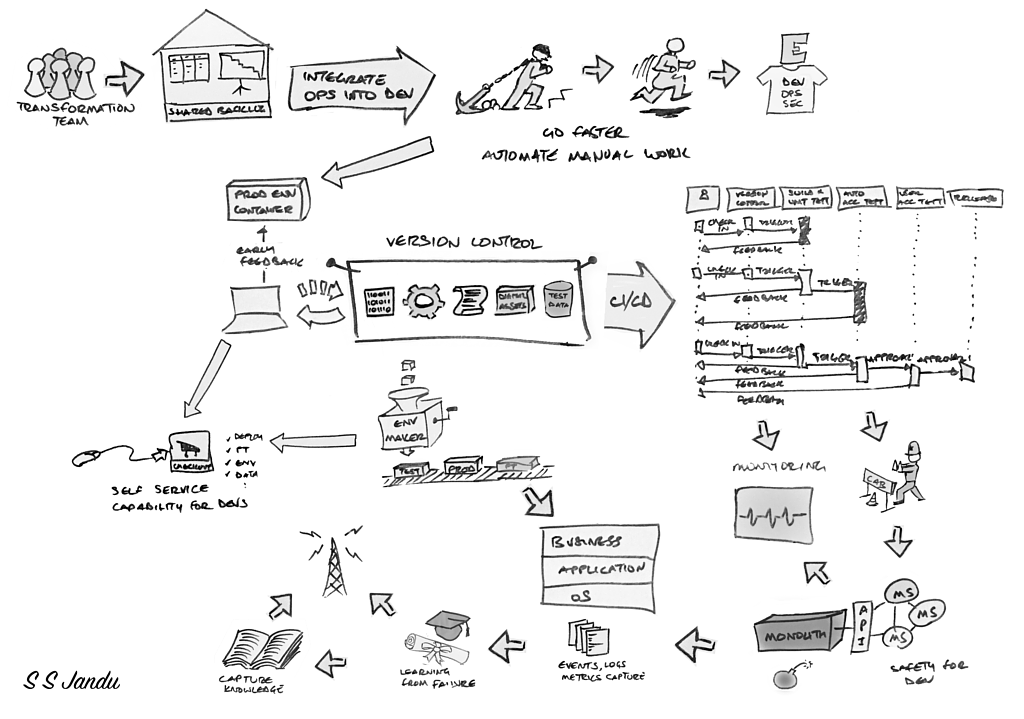 TRANSFORMATION
TEAM
SHARED BACKLOG
INTEGRATE
OPS INTO DEV
GO FASTER
AUTOMATE MANUAL WORK
E
DEV
OPS
SEC
PROD ENV
CONTAINER
EARLY
FEEDBACK
VERSION CONTROL
110011
101011
10110
DIGITAL
ASSETS
TEST
DATA
CI/CD
VERSION
CONTROL
BUILD &
UNIT TEST
AUTO
ACC TEST
USER
ACC TEST
RELEASE
CHECK
IN
TRIGGER
FEEDBACK
CHECK
IN
TRIGGER
TRIGGER
FEEDBACK
FEEDBACK
CHECK IN
TRIGGER
TRIGGER
APPROVAL
APPROVAL
FEEDBACK
FEEDBACK
FEEDBACK
ENV
MAKER
TEST
PROD
PT
CHECKOUT
✓ DEPLOY
✓ PT
✓ ENV
✓ DATA
SELF SERVICE
CAPABILITY FOR DEVS
MONITORING
CAB
BUSINESS
APPLICATION
OS
MONOLITH
API
MS
MS
MS
SAFETY FOR
DEV
EVENTS, LOGS
METRICS CAPTURE
LEARNING
FROM FAILURE
CAPTURE
KNOWLEDGE
S S Jandu